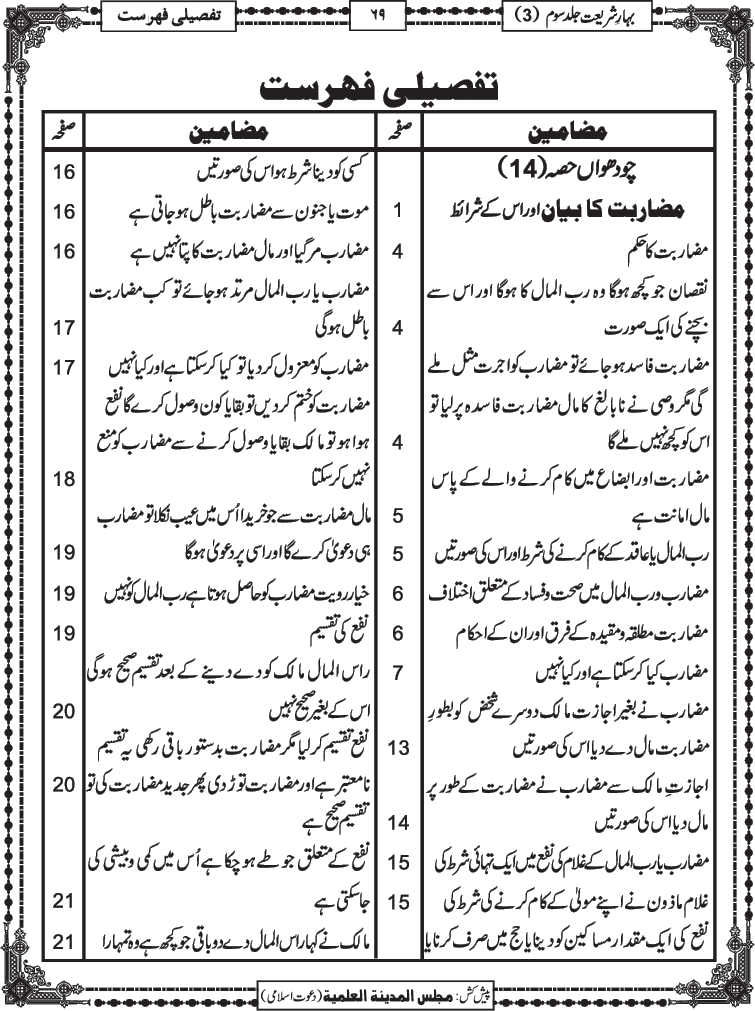 بہارِشریعت جلد سوم (3)
۶۹
تفصیلی فهرست
تفصیلی فهرست
مضامین
صفحہ
چودھواں حصہ (14)
مضاربت کا بیان اور اس کے شرائط
1
مضاربت کا حکم
4
نقصان جو کچھ ہوگا وہ رب المال کا ہوگا اور اس سے
بچنے کی ایک صورت
4
مضاربت فاسد ہو جائے تو مضارب کو اجرت مثل ملے
گی مگر وصی نے نابالغ کا مال مضاربت فاسدہ پر لیا تو
اس کو کچھ نہیں ملے گا
4
مضاربت اور ابضاع میں کام کرنے والے کے پاس
مال امانت ہے
5
رب المال یا عاقد کے کام کرنے کی شرط اور اس کی صورتیں
5
مضارب و رب المال میں صحت و فساد کے متعلق اختلاف
6
مضاربت مطلقہ و مقیدہ کے فرق اور ان کے احکام
6
مضارب کیا کر سکتا ہے اور کیا نہیں
7
مضارب نے بغیر اجازت مالک دوسرے شخص کو بطورِ
مضاربت مال دے دیا اس کی صورتیں
13
اجازتِ مالک سے مضارب نے مضاربت کے طور پر
مال دیا اس کی صورتیں
14
مضارب یا رب المال کے غلام کی نفع میں ایک تہائی شرط کی
15
غلام ماذون نے اپنے مولیٰ کے کام کرنے کی شرط کی
15
نفع کی ایک مقدار مساکین کو دینا یا حج میں صرف کرنا یا
مضامین
صفحہ
کسی کو دینا شرط ہو اس کی صورتیں
16
موت یا جنون سے مضاربت باطل ہو جاتی ہے
16
مضارب مر گیا اور مال مضاربت کا پتا نہیں ہے
16
مضارب یا رب المال مرتد ہو جائے تو کب مضاربت
باطل ہوگی
17
مضارب کو معزول کر دیا تو کیا کر سکتا ہے اور کیا نہیں
17
مضاربت کو ختم کر دیں تو بقایا کون وصول کرے گا نفع
ہوا ہو تو مالک بقایا وصول کرنے سے مضارب کو منع
نہیں کر سکتا
18
مال مضاربت سے جو خریدا اُس میں عیب نکلا تو مضارب
ہی دعویٰ کرے گا اور اسی پر دعویٰ ہوگا
19
خیار رویت مضارب کو حاصل ہوتا ہے رب المال کو نہیں
19
نفع کی تقسیم
19
راس المال مالک کو دے دینے کے بعد تقسیم صحیح ہوگی
اس کے بغیر صحیح نہیں
20
نفع تقسیم کر لیا مگر مضاربت بدستور باقی رکھی یہ تقسیم
نامعتبر ہے اور مضاربت توڑ دی پھر جدید مضاربت کی تو
20
تقسیم صحیح ہے
نفع کے متعلق جو طے ہو چکا ہے اُس میں کمی و بیشی کی
جاسکتی ہے
21
مالک نے کہا راس المال دے دو باقی جو کچھ ہے وہ تمہارا
21
پیش کش: مجلس المدينة العلمية (دعوت اسلامی)